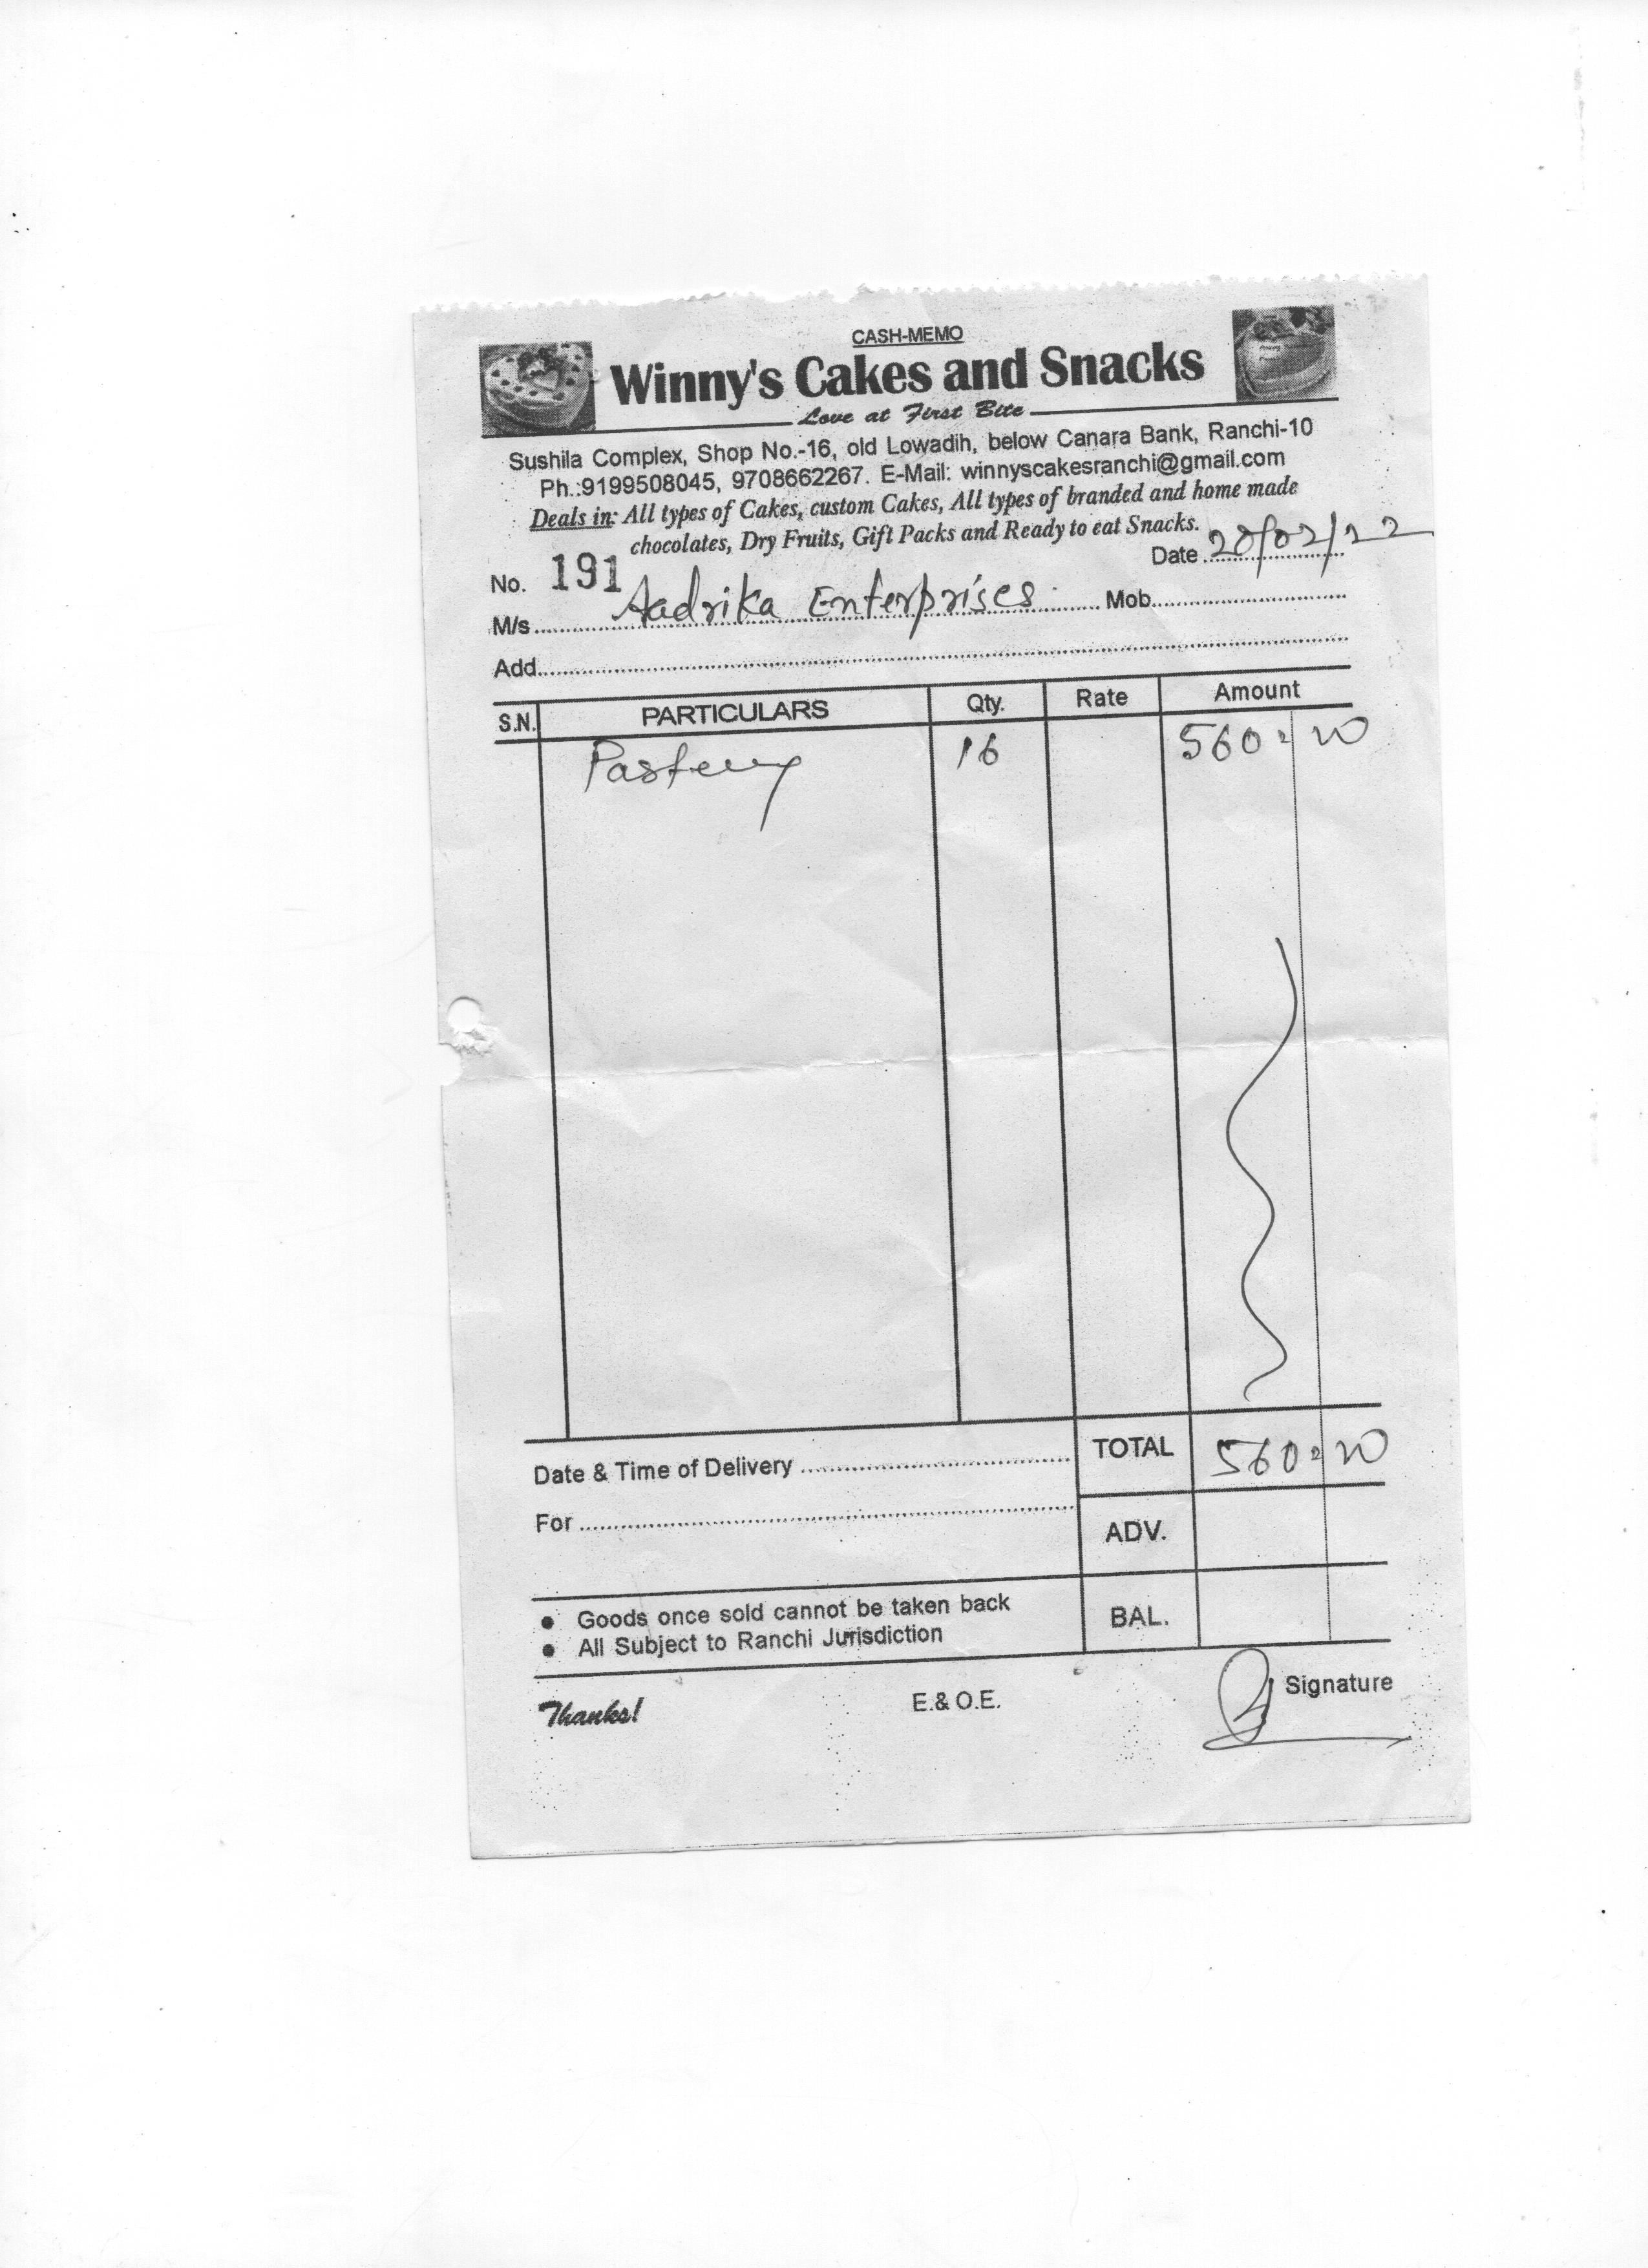 CASH-MEMO
Winny's Cakes and Snacks
Love at First Bite
Sushila Complex, Shop No.-16, old Lowadih, below Canara Bank, Ranchi-10
Ph.:9199508045, 9708662267. E-Mail: winnyscakesranchi@gmail.com
Deals in: All types of Cakes, custom Cakes, All types of branded and home made
chocolates, Dry Fruits, Gift Packs and Ready to eat Snacks.
No. 191 Date 20/02/22
M/s Aadrika Enterprises Mob.
Add.
S.N. PARTICULARS Qty. Rate Amount
Pastery 16 560=00
Date & Time of Delivery TOTAL 560=00
For
ADV.
Goods once sold cannot be taken back
All Subject to Ranchi Jurisdiction
BAL.
Thanks! E.& O.E. Signature